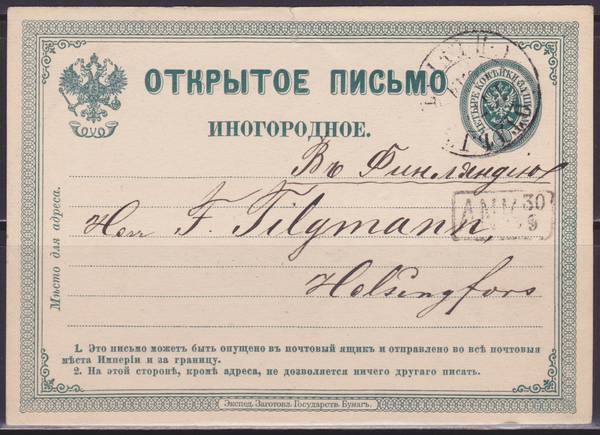 ОТКРЫТОЕ ПИСЬМО
ЧЕТЫРЕ КОПѢЙКИ
ИНОГОРОДНОЕ.
Въ Финляндію
Herr F. Tilgmann,
30
9
Helsingfors
Мѣсто для адреса.
1. Это письмо можетъ быть опущено въ почтовый ящикъ и отправлено во всѣ почтовыя
мѣста Имперіи и за границу.
2. На этой сторонѣ, кромѣ адреса, не дозволяется ничего другаго писать.
Экспед. Заготовл. Государств. Бумагъ.